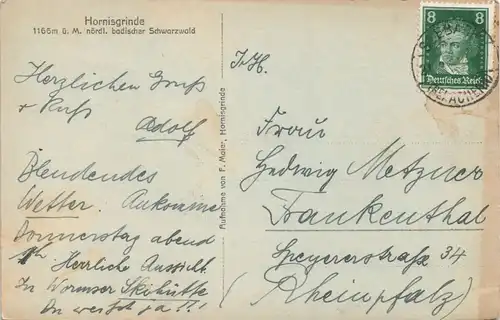 Hornisgrinde
1166m ü. M. nördl. badischer Schwarzwald
Herzlichen Gruß
+ Kuß
Adolf
Blendendes
Wetter. Ankomme
Donnerstag abend
Herrliche Aussicht
In Wormser Skihütte
Du weißt ja!!
Aufnahme von F. Maier, Hornisgrinde
I. H.
Frau
Hedwig Metzner
Frankenthal
Speyererstraße 34
(Rheinpfalz)
8 8
Deutsches Reich